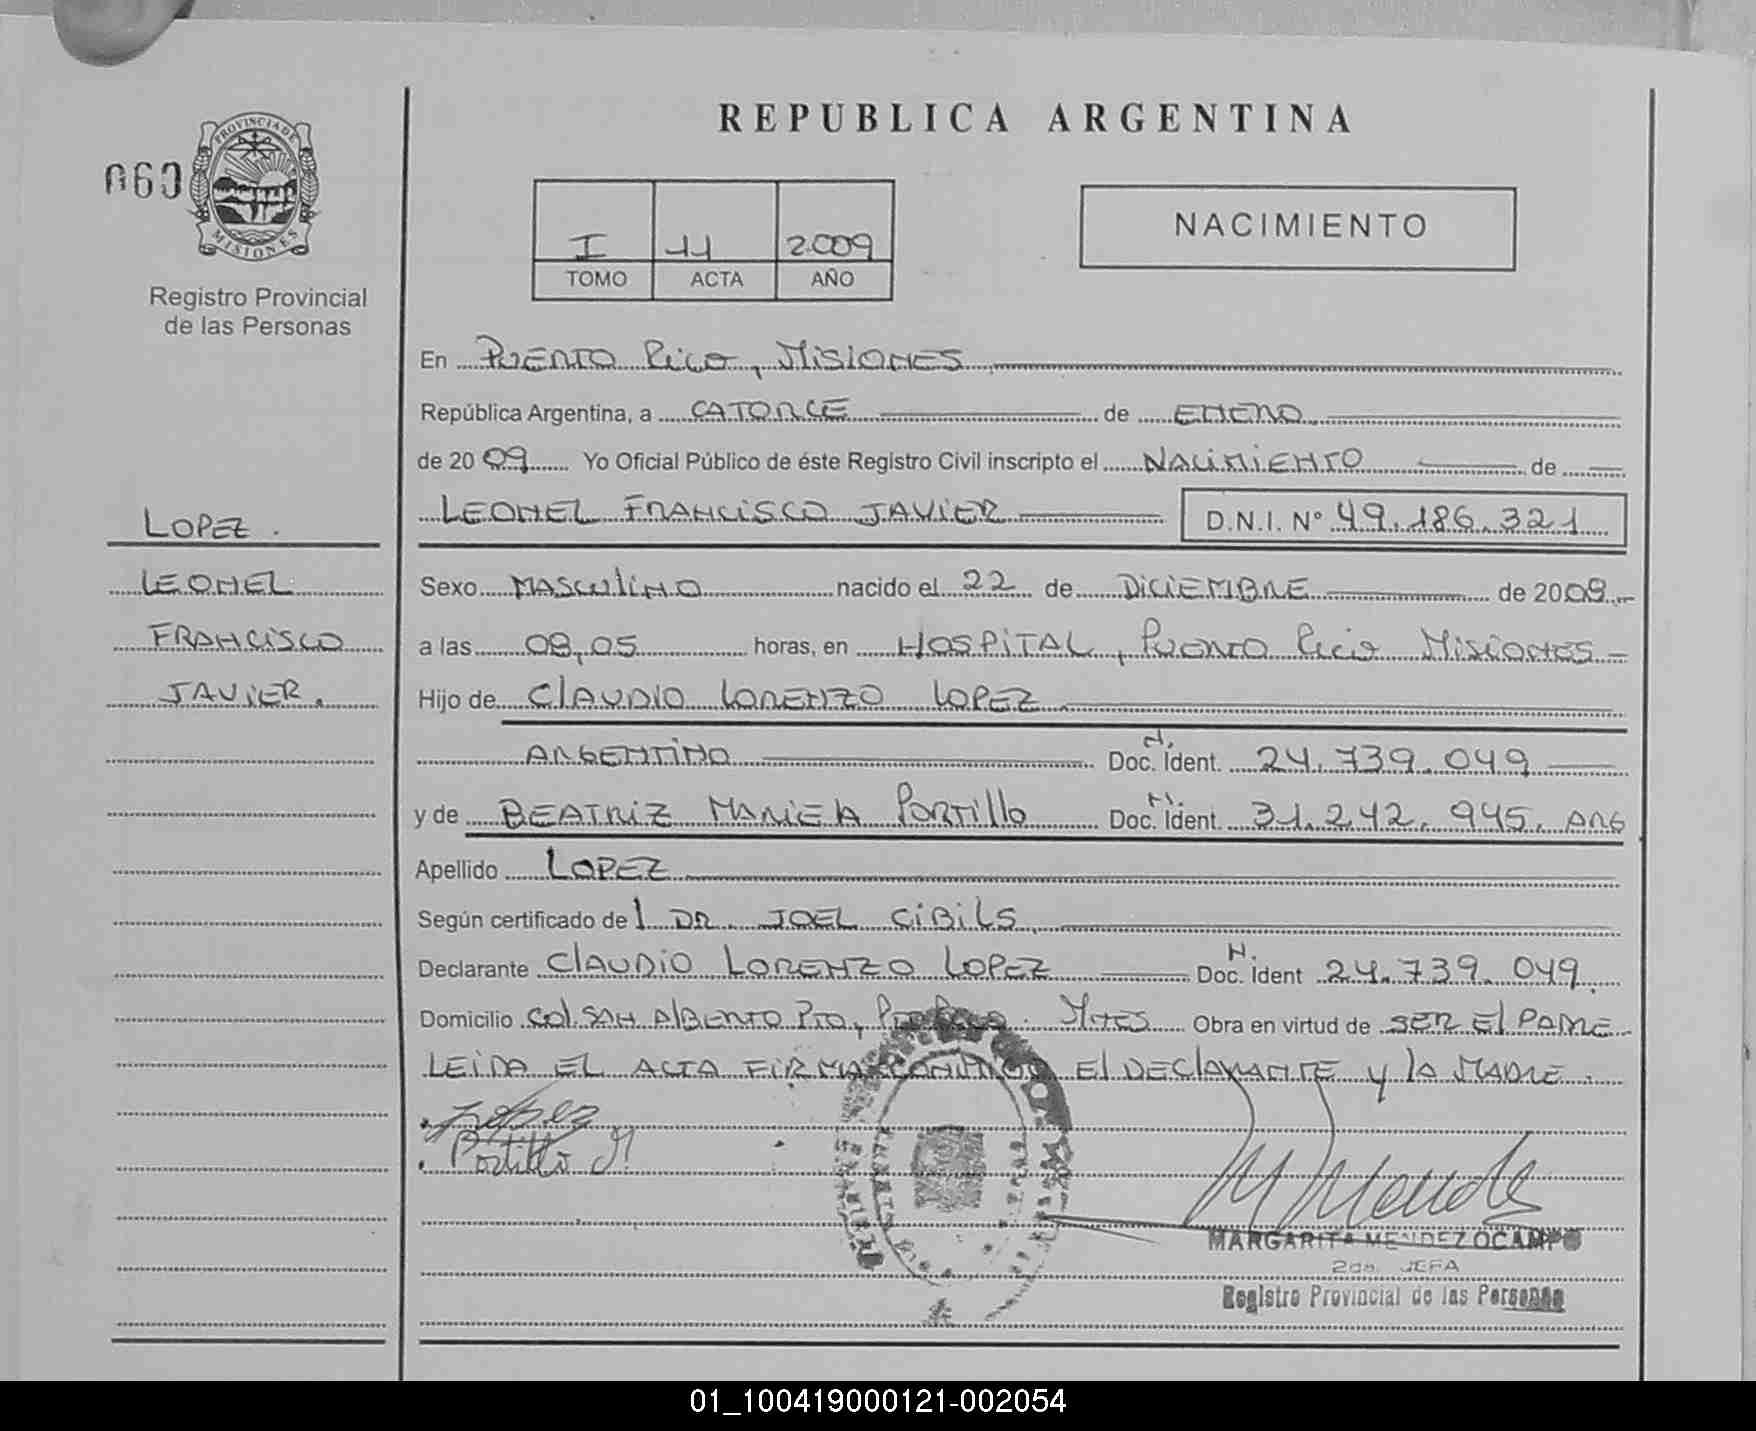 REPUBLICA ARGENTINA
060
PROVINCIA DE
MISIONES
Registro Provincial
de las Personas
I 11 2009
TOMO ACTA AÑO
NACIMIENTO
En PUERTO Rico, MISIONES
República Argentina, a CATORCE de ENERO
de 2009 Yo Oficial Público de éste Registro Civil inscripto el NACIMIENTO de
LEONEL FRANCISCO JAVIER D.N.I. N° 49.186.321
LOPEZ.
LEONEL
FRANCISCO
JAVIER.
Sexo MASCULINO nacido el 22 de DICIEMBRE de 2009
a las 08,05 horas, en HOSPITAL, PUERTO Rico MISIONES
Hijo de CLAUDIO LORENZO LOPEZ
ARGENTINO Doc. N. Ident. 24.739.049
y de BEATRIZ MARIELA PORTILLO Doc. N. Ident. 31.242.945. ARG
Apellido LOPEZ
Según certificado del DR. JOEL CIBILS
Declarante CLAUDIO LORENZO LOPEZ Doc. N. Ident 24.739.049
Domicilio COL. SAN ALBERTO PTO, MNES Obra en virtud de SER EL PADRE
LEIDA EL ACTA FIRMAN CONMIGO El DECLARANTE y la MADRE.
Lopez
Portillo M
M Mendez
MARGARITA MENDEZ OCAMPO
2da. JEFA
Registro Provincial de las Personas
01_100419000121-002054